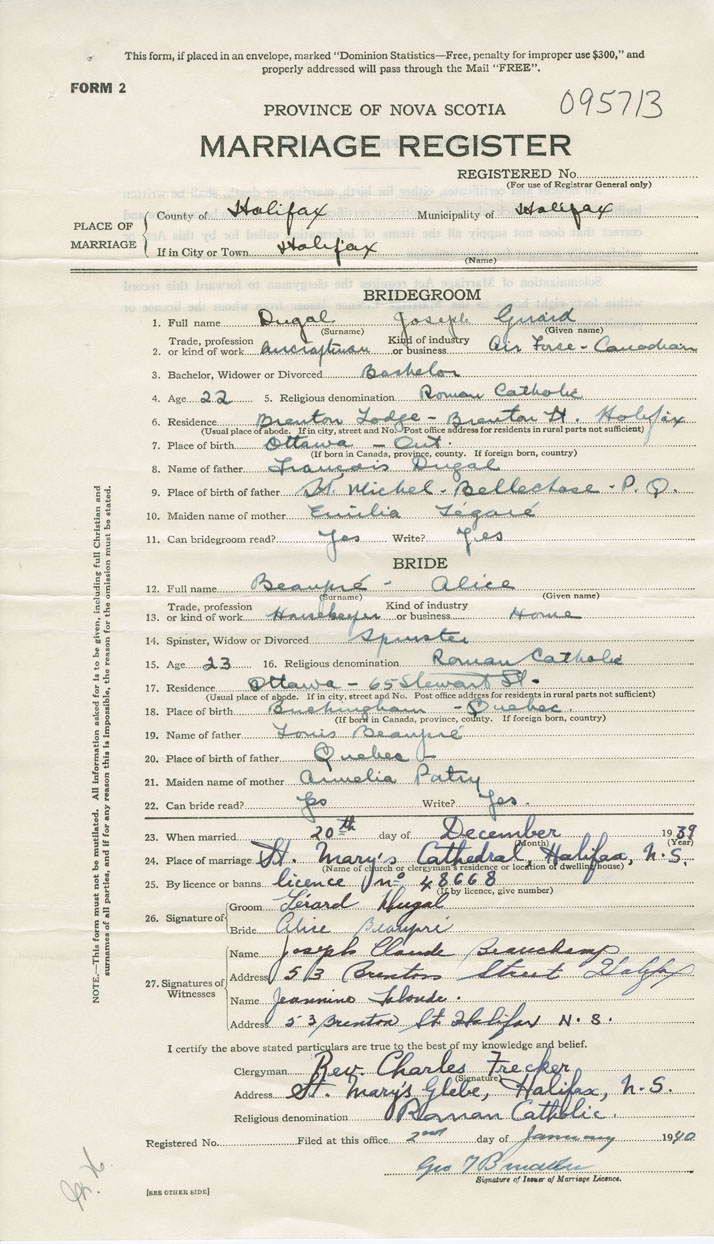 This form, if placed in an envelope, marked "Dominion Statistics—Free, penalty for improper use $300," and
properly addressed will pass through the Mail "FREE".
FORM 2
095713
PROVINCE OF NOVA SCOTIA
MARRIAGE REGISTER
REGISTERED No.
(For use of Registrar General only)
PLACE OF MARRIAGE
County of Halifax Municipality of Halifax
If in City or Town Halifax
(Name)
BRIDEGROOM
1. Full name Dugal Joseph Gerard
(Surname) (Given name)
2. Trade, profession or kind of work Aircraftman Kind of industry or business Air Force - Canadian
3. Bachelor, Widower or Divorced Bachelor
4. Age 22 5. Religious denomination Roman Catholic
6. Residence Brenton Lodge - Brenton St. Halifax
(Usual place of abode. If in city, street and No. Post office address for residents in rural parts not sufficient)
7. Place of birth Ottawa - Ont.
(If born in Canada, province, county. If foreign born, country)
8. Name of father Francois Dugal
9. Place of birth of father St. Michel - Bellechase - P.Q.
10. Maiden name of mother Emilia Légaré
11. Can bridegroom read? Yes Write? Yes
BRIDE
12. Full name Beaupré - Alice
(Surname) (Given name)
13. Trade, profession or kind of work Housekeeper Kind of industry or business Home
14. Spinster, Widow or Divorced Spinster
15. Age 23 16. Religious denomination Roman Catholic
17. Residence Ottawa - 65 Stewart St.
(Usual place of abode. If in city, street and No. Post office address for residents in rural parts not sufficient)
18. Place of birth Buckingham - Quebec.
(If born in Canada, province, county. If foreign born, country)
19. Name of father Louis Beaupré
20. Place of birth of father Quebec -
21. Maiden name of mother Amelia Patry
22. Can bride read? Yes Write? Yes.
23. When married 20th day of December 1939
(Month) (Year)
24. Place of marriage St. Mary's Cathedral, Halifax, N.S.
(Name of church or clergyman's residence or location of dwelling house)
25. By licence or banns licence no 48668
(If by licence, give number)
26. Signature of
Groom Gérard Dugal
Bride Alice Beaupré
27. Signatures of Witnesses
Name Joseph Claude Beauchamp
Address 53 Brenton Street Halifax
Name Jeannine Lalonde.
Address 53 Brenton St. Halifax N.S.
I certify the above stated particulars are true to the best of my knowledge and belief.
Clergyman Rev. Charles Frecker
(Signature)
Address St. Mary's Glebe, Halifax, N.S.
Religious denomination Roman Catholic.
Registered No. Filed at this office 2nd day of January 1940
Geo
Signature of Issuer of Marriage Licence.
[SEE OTHER SIDE]
NOTE.—This form must not be mutilated. All information asked for is to be given, including full Christian and
surnames of all parties, and if for any reason this is impossible, the reason for the omission must be stated.